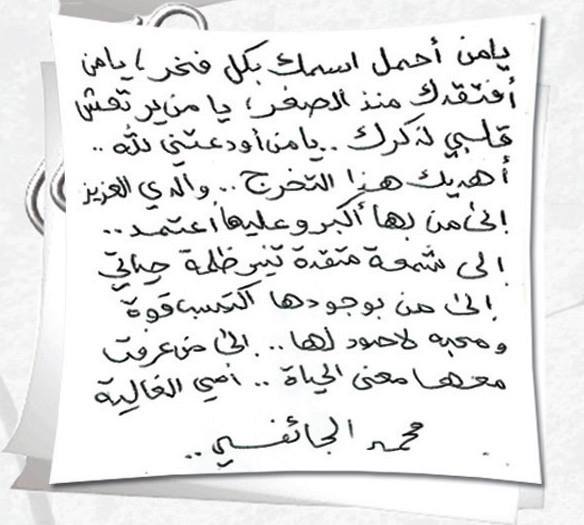 يامن أحمل اسمك بكل فخر، يامن
أفتقدك منذ الصغر، يا من يرتعش
قلبي لذكرك .. يا من أودعتني لله ..
أهديك هذا التخرج .. والدي العزيز
إلى من بها أكبر وعليها أعتمد ..
إلى شمعة متقدة تنير ظلمة حياتي
إلى من بوجودها أكتسب قوة
ومحبه لا حدود لها .. إلى من عرفت
معها معنى الحياة .. أمي الغالية
محمد الجائفسي ..